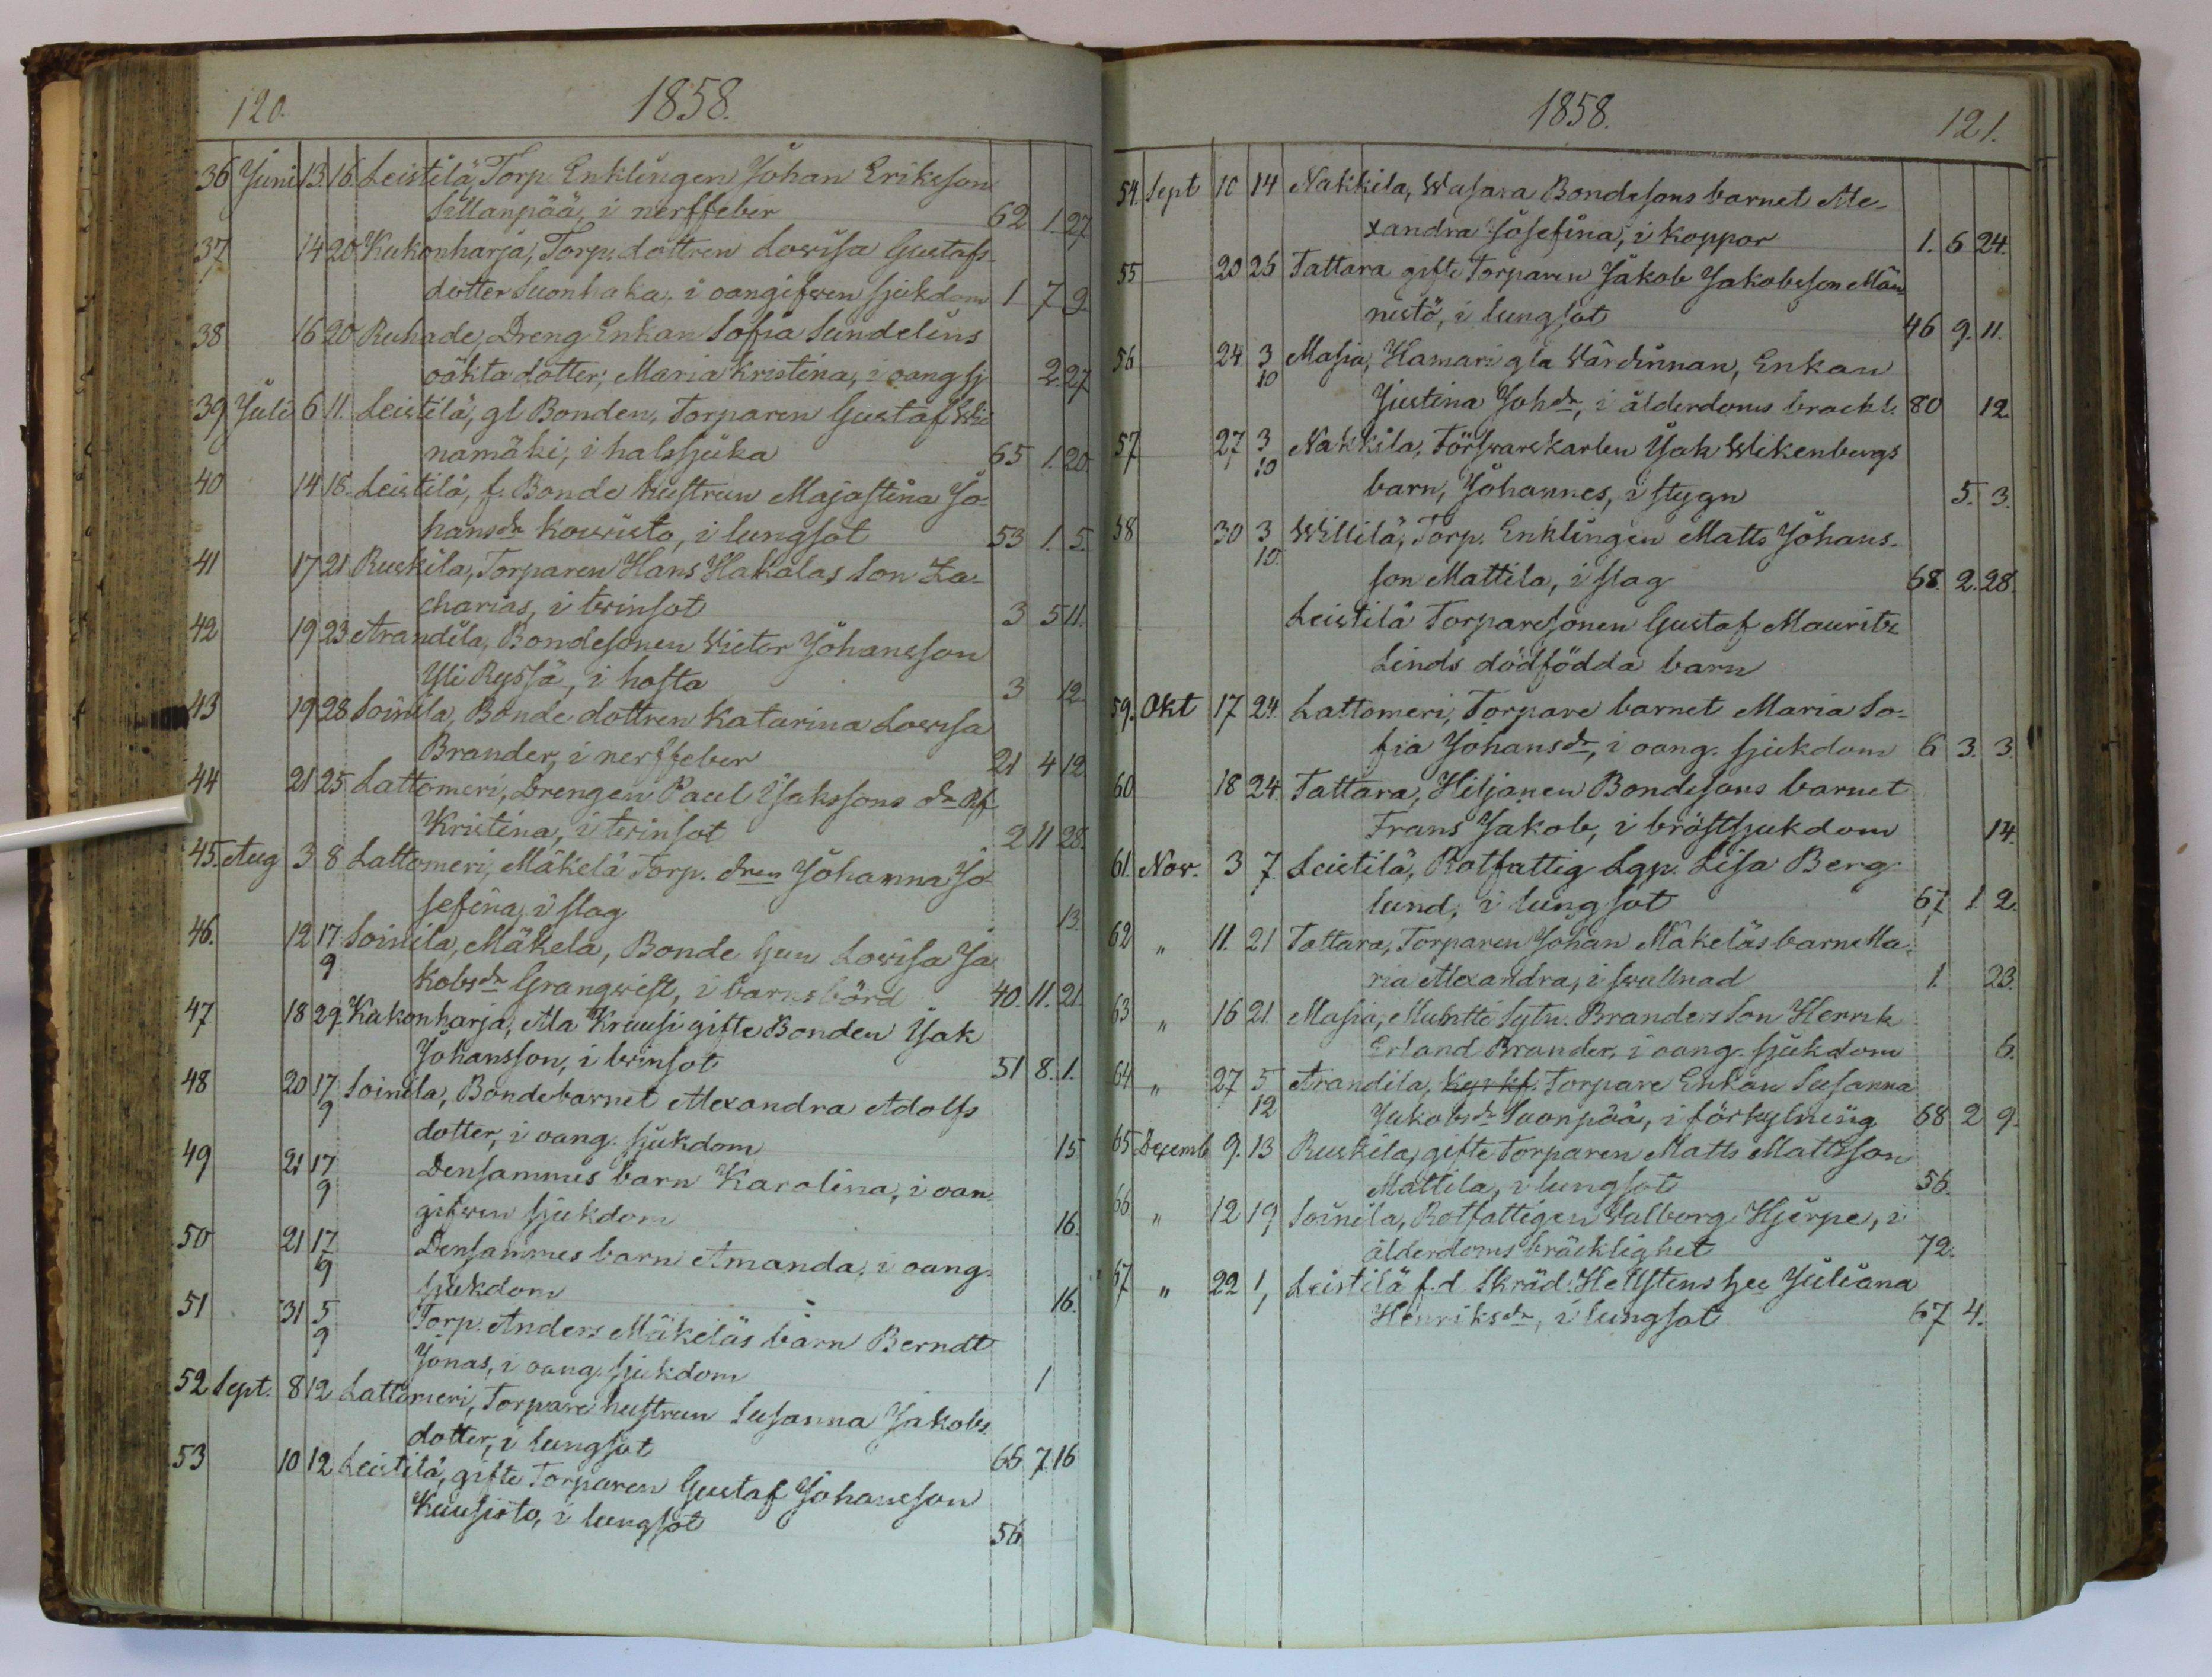 120.
1858.
36 Juni 13. 16. Leistilä, Torp. Enklingen Johan Eriksson
Sillanpää, i nerffeber 62 1. 27
37 14 20 Kukonharja, Torp. dottren Lovisa Gustafs-
dotter Suonhaka, i oangifven sjukdom 1 7 9.
38 16 20 Ruhade, Dreng Enkan Sofia Sundelins
oäkta dotter, Maria Kristina, i oang sj 2. 27
39 Juli 6 11. Leistilä, gl Bonden, Torparen Gustaf Wii
namäki, i halssjuka 65 1. 20
40 14 18. Leistilä, f. Bonde hustrun Majastina Jo-
hansdr Kowisto, i lungsot 53 1. 5.
41 17 21 Ruskila, Torparen Hans Hakalas Son Za-
charias, i twinsot 3 5 11.
42 19 23 Arandila, Bondesonen Wictor Johansson
Yli Ryssä, i hosta 3 12.
43 19 28 Soinila, Bonde dottren Katarina Lovisa
Brander, i nerffeber 21 4 12
44 21 25 Lattomeri, Drengen Paul Isakssons dr
Kristina, i twinsot 2 11 28.
45. Aug 3 8 Lattomeri, Mäkelä Torp. dren Johanna Jo-
sefina, i slag 13.
46. 12 17 9 Soinila, Mäkelä, Bonde hun Lovisa Ja
kobsdr Granqwist, i barnsbörd 40. 11. 21.
47 18 29. Kukonharja, Ala Kruusi gifte Bonden Isak
Johansson, i twinsot 51 8. 1.
48 20 17 9 Soinila, Bondebarnet Alexandra Adolfs
dotter, i oang. sjukdom 15
49 21 17 9 Densammes barn Karolina, i oan
gifven sjukdom 16.
50 21 17 9 Densammes barn Amanda, i oang.
sjukdom 16.
51 31 5 9 Torp. Anders Mäkeläs barn Berndt
Jonas, i oang. sjukdom 1
52 Sept. 8 12 Lattomeri, Torpare hustrun Susanna Jakobs
dotter, i lungsot 65 7 16
53 10 12 Leistilä, gifte Torparen Gustaf Johansson
Kuusisto, i lungsot 56
1858.
121.
54. Sept 10 14 Nakkila, Wasara Bondesons barnet Ale-
xandra Josefina, i koppor 1. 6 24.
55 20 25 Tattara gifte Torparen Jakob Jakobsson Män
nistö, i lungsot 46 9. 11.
56 24 3 10 Masia, Hamari gla Värdinnan, Enkan
Justina Johdr, i ålderdoms brackl. 80 12.
57 27 3 10 Nakkila, Försvarskarlen Isak Wikenbergs
barn, Johannes, i stygn 5. 3.
58 30 3 10. Willilä, Torp. Enklingen Matts Johans-
son Mattila, i slag 68. 2. 28.
Leistilä Torparesonen Gustaf Mauritz
Linds dödfödda barn
59. Okt 17 24. Lattomeri, Torpare barnet Maria So-
fia Johansdr, i oang. sjukdom 6 3. 3.
60 18 24. Tattara, Hiljanen Bondesons barnet
Frans Jakob, i bröstsjukdom 14.
61. Nov. 3 7. Leistilä, Rotfattig Lgp. Lisa Berg-
lund, i lungsot 67 1. 2.
62 " 11. 21 Tattara, Torparen Johan Mäkeläs barn Ma-
ria Alexandra, i swullnad 1. 23.
63 " 16 21 Masia, Sytn. Branders Son Henrik
Erland Brander, i oang. sjukdom 6.
64 " 27 5 12 Arandila, Torpare Enkan Susanna
Jakobsdr Suonpää, i förkylning 68 2 9.
65 Decemb 9. 13 Ruskila, gifte Torparen Matts Mattsson
Mattila, i lungsot 56.
66 " 12 19 Soinila, Rotfattigen Walborg Hjerpe, i
ålderdoms bräcklighet 72.
67 " 22 1 1 Leistilä f.d. Skräd. Hellstens hu Juliana
Henriksdr, i lungsot 67 4.